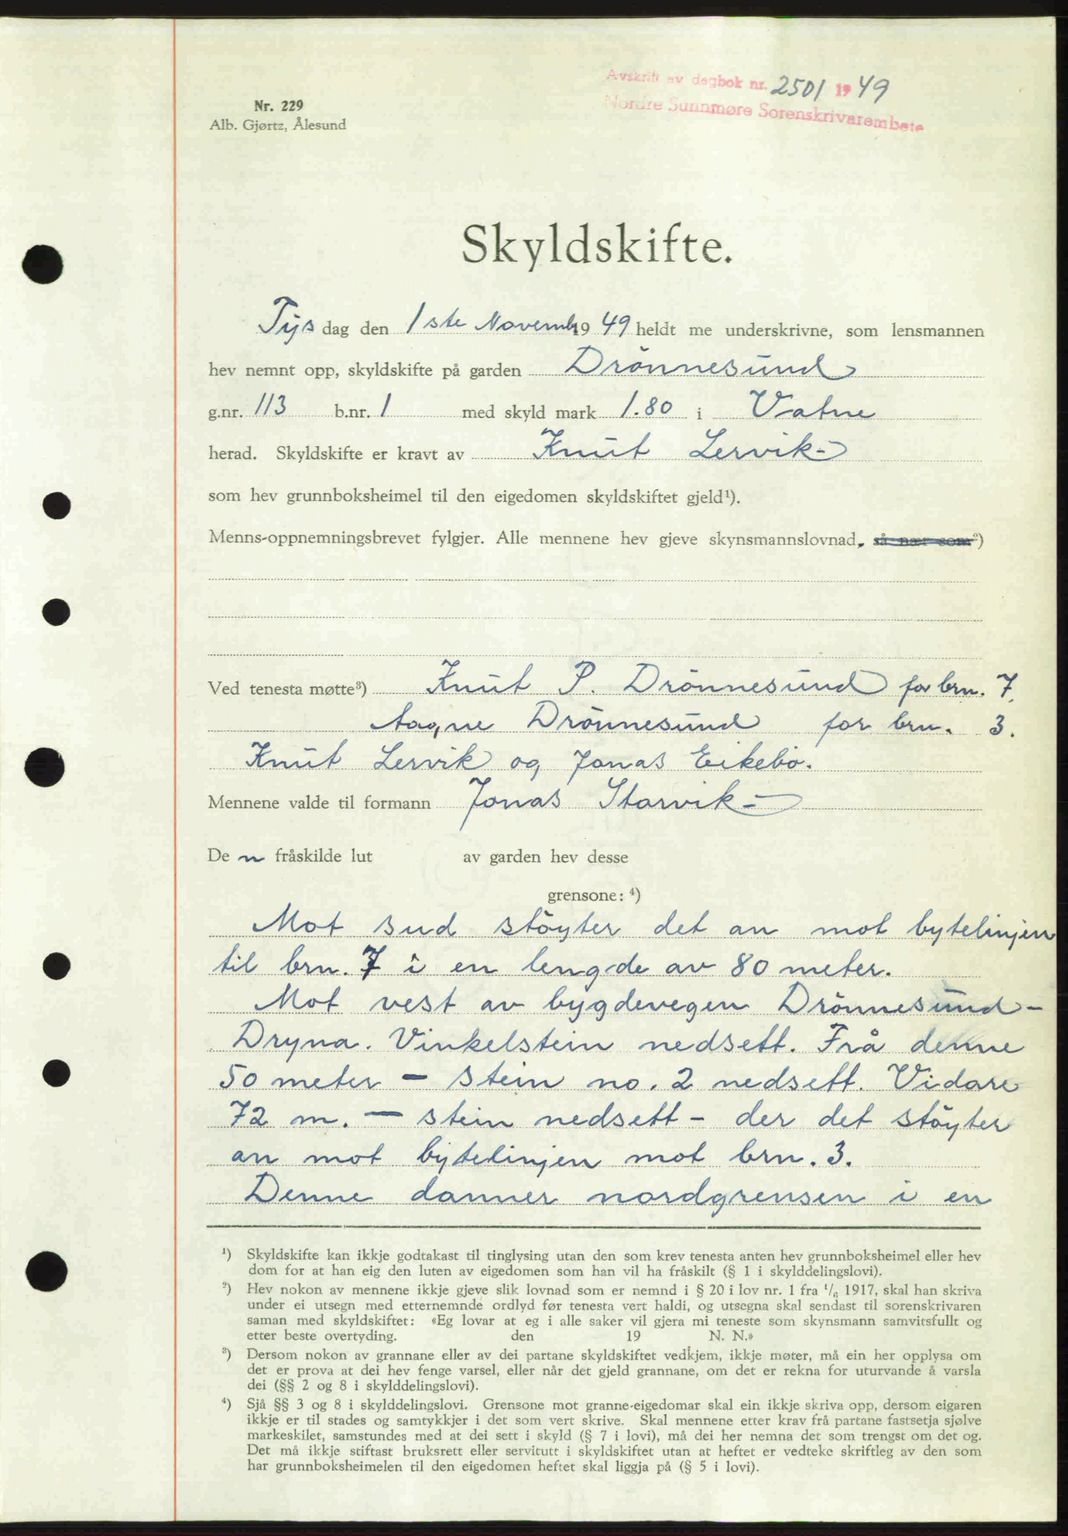 Avskrift av dagbok nr. 2501 1949
Nordre Sunnmøre Sorenskrivarembete
Nr. 229
Alb. Gjørtz, Ålesund
Skyldskifte.
Tysdag den 1ste Novemb. 1949 heldt me underskrivne, som lensmannen
hev nemnt opp, skyldskifte på garden Drönnesund
g.nr. 113 b.nr. 1 med skyld mark 1.80 i Vatne
herad. Skyldskifte er kravt av Knut Lervik
som hev grunnboksheimel til den eigedomen skyldskiftet gjeld¹).
Menns-oppnemningsbrevet fylgjer. Alle mennene hev gjeve skynsmannslovnad. så nær som²)
Ved tenesta møtte³) Knut P. Drönnesund for brn. 7,
Aagne Drönnesund for brn. 3.
Knut Lervik og Jonas Eikebö.
Mennene valde til formann Jonas Storvik
De n fråskilde lut av garden hev desse
grensone: ⁴)
Mot sud stöyter det an mot bytelinjen
til brn. 7 i en lengde av 80 meter.
Mot vest av bygdevegen Drönnesund-
Dryna. Vinkelstein nedsett. Frå denne
50 meter - stein no. 2 nedsett. Vidare
72 m. - stein nedsett - der det stöyter
an mot bytelinjen mot brn. 3.
Denne danner nordgrensen i en
¹) Skyldskifte kan ikkje godtakast til tinglysing utan den som krev tenesta anten hev grunnboksheimel eller hev
dom for at han eig den luten av eigedomen som han vil ha fråskilt (§ 1 i skylddelingslovi).
²) Hev nokon av mennene ikkje gjeve slik lovnad som er nemnd i § 20 i lov nr. 1 fra ¹/₆ 1917, skal han skriva
under ei utsegn med etternemnde ordlyd før tenesta vert haldi, og utsegna skal sendast til sorenskrivaren
saman med skyldskiftet: «Eg lovar at eg i alle saker vil gjera mi teneste som skynsmann samvitsfullt og
etter beste overtyding. den 19 N. N.»
³) Dersom nokon av grannane eller av dei partane skyldskiftet vedkjem, ikkje møter, må ein her opplysa om
det er prova at dei hev fenge varsel, eller når det gjeld grannane, om det er rekna for uturvande å varsla
dei (§§ 2 og 8 i skylddelingslovi).
⁴) Sjå §§ 3 og 8 i skylddelingslovi. Grensone mot granne-eigedomar skal ein ikkje skriva opp, dersom eigaren
ikkje er til stades og samtykkjer i det som vert skrive. Skal mennene etter krav frå partane fastsetja sjølve
markeskilet, samstundes med at dei sett i skyld (§ 7 i lovi), må dei her nemna det som trengst om det og.
Det må ikkje stiftast bruksrett eller servitutt i skyldskiftet utan at heftet er vedteke skriftleg av den som
har grunnboksheimelen til den eigedomen heftet skal liggja på (§ 5 i lovi).